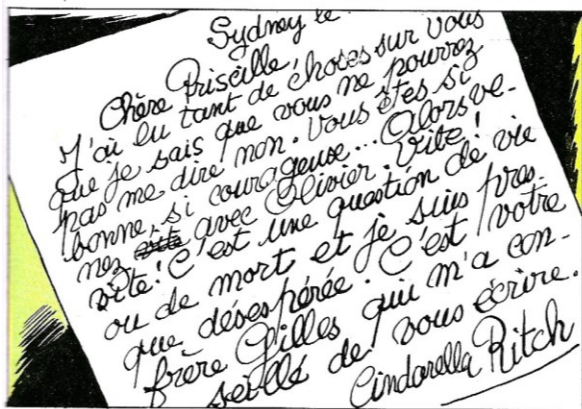 Sydney le
Chère Priscille,
J'ai lu tant de choses sur vous
que je sais que vous ne pouvez
pas me dire non. Vous êtes si
bonne, si courageuse... Alors ve-
nez avec Olivier. Vite!
vite! C'est une question de vie
ou de mort et je suis pres-
que désespérée. C'est votre
frère Gilles qui m'a con-
seillé de vous écrire.
Cindarella Ritch